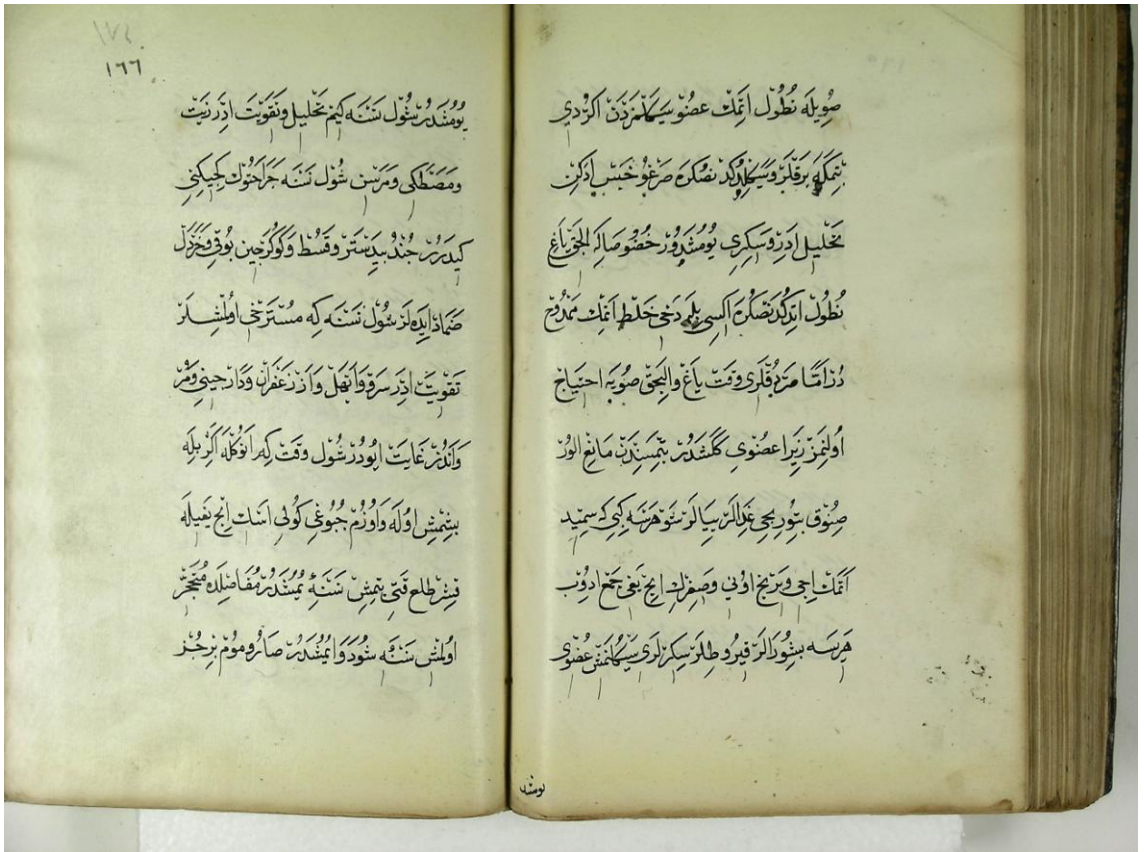 صُويلَه نُطُول اتمَك عضُو سيكلنمزدَن اكرْدى
بتمكله برقلر وسيكلدكدنصكره صَرغو خَبَس ادَكن
تحليل ادَر وسكرى يُومُشدور خصُوصاكه الجق ياغ
نُطُول اتدكدنصكره اكسى بله دخى خلط اتمك ممدُوح
دُر امّا مرَبُوقلرى وقت ياغ والجق صُويَه احتياج
اُولنمز زيرا عضوى كلمشدر بتمسندن مانع الور
صنوق بتوريجى غدالر بيالر شو هرسه كبى كه سميد
اتمك اجى وبرنج اونى وصغرك ايج يغى جمع ادوب
هرسه بشورالر قيروطلر سكرلرى سيكلنمش عضوى
لومشد
١٦٦
يُومُشدر شُول سَنه كيم تحليل وتقويت ادَر زيت
ومصطكى ومرسن شول نسنه جراحتوك كجيكنى
كيدرر جُندبيدستر وقسط وكوكرجين بُوقى وخردل
ضماد ايده لر شول نسنه كه مسترخى اولمشلر
تقويت ادر سرو وابهل واز زعفران ودارجينى ومر
واندر غايت ايودر شول وقت كه انوكله اكر بله
بشمش اوله واوزم جبوغى كولى اسك ايج يغيله
قشر طلع قتى بتمش سنه يمشدر مفاصلده متحجر
اولمش سنه شودوا يمشدر صارو موم بر جز